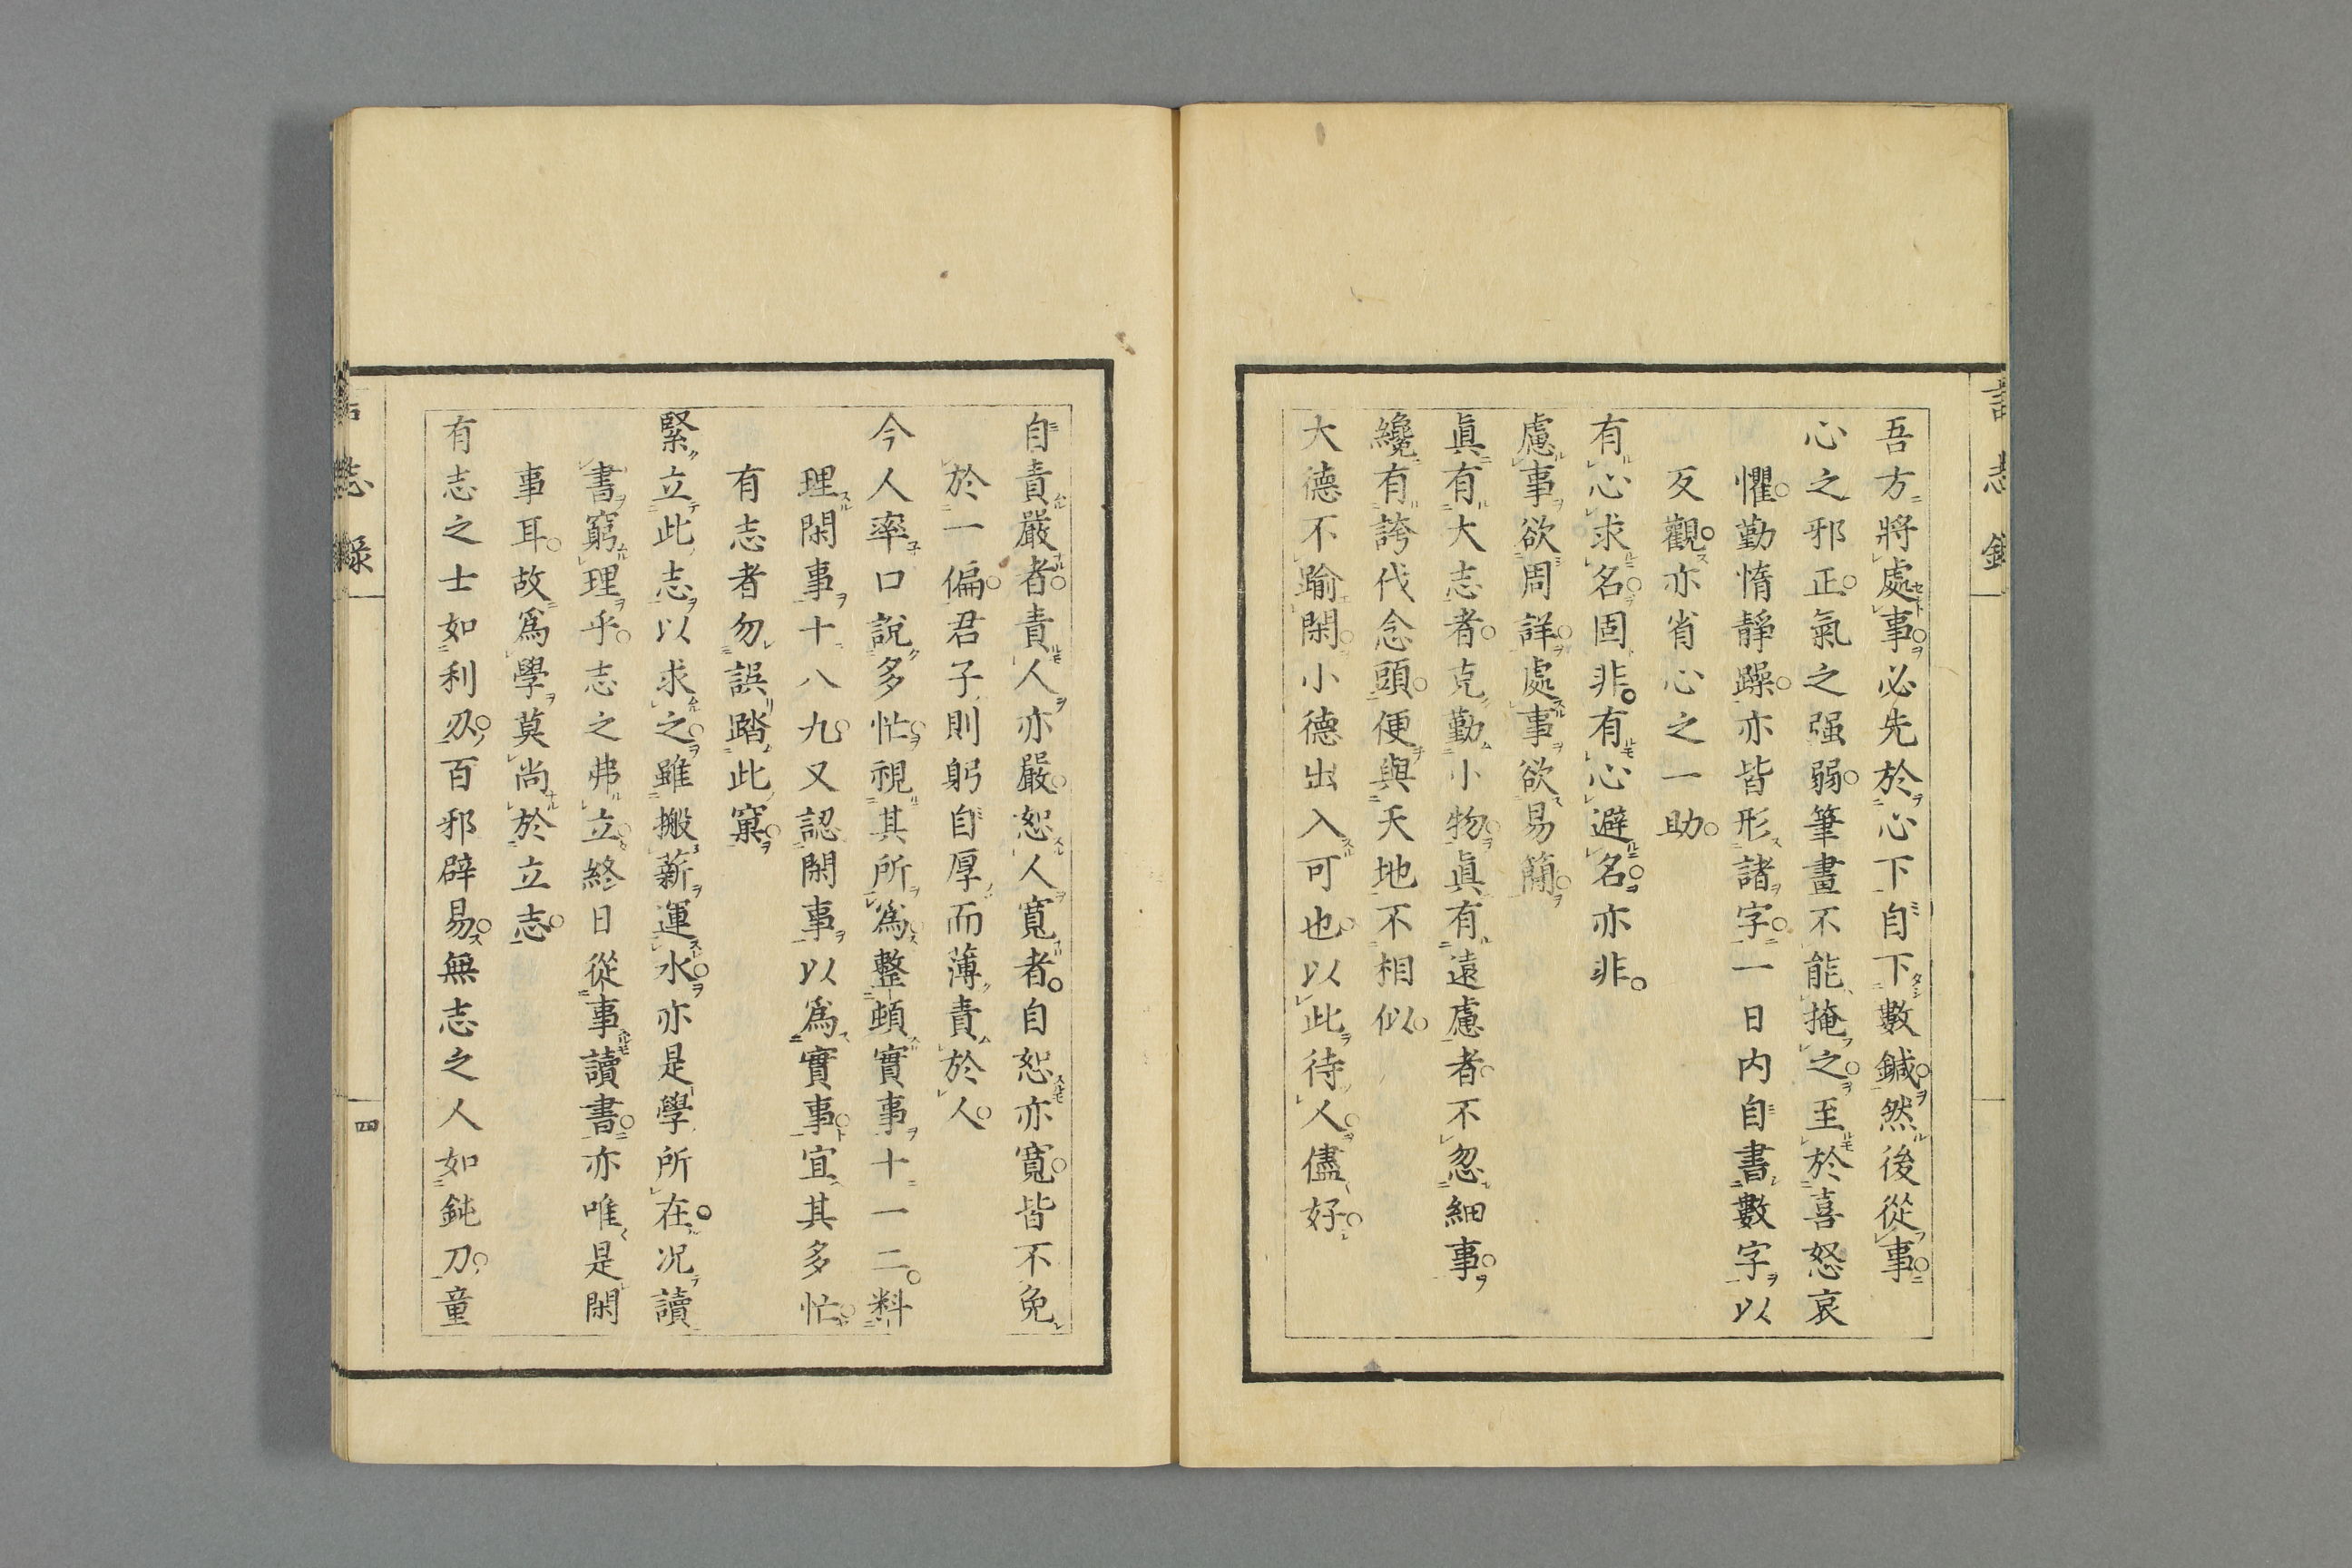 吾方將處事必先於心下自下數鍼然後從事
心之邪正氣之强弱筆畫不能掩之至於喜怒哀
懼勤惰靜躁亦皆形諸字一日内自書數字以
反觀亦省心之一助
有心求名固非有心避名亦非
慮事欲周詳處事欲易簡
眞有大志者克勤小物眞有遠慮者不忽細事
纔有誇伐念頭便與天地不相似
大德不踰閑小德出入可也以此待人儘好
自責嚴者責人亦嚴恕人寬者自恕亦寬皆不免
於一偏君子則躬自厚而薄責於人
今人率口說多忙視其所爲整頓實事十一二料
理閑事十八九又認閑事以爲實事宜其多忙
有志者勿誤踏此窠
緊立此志以求之雖搬薪運水亦是學所在况讀
書窮理乎志之弗立終日從事讀書亦唯是閑
事耳故爲學莫尚於立志
有志之士如利刃百邪辟易無志之人如鈍刀童
志錄
四